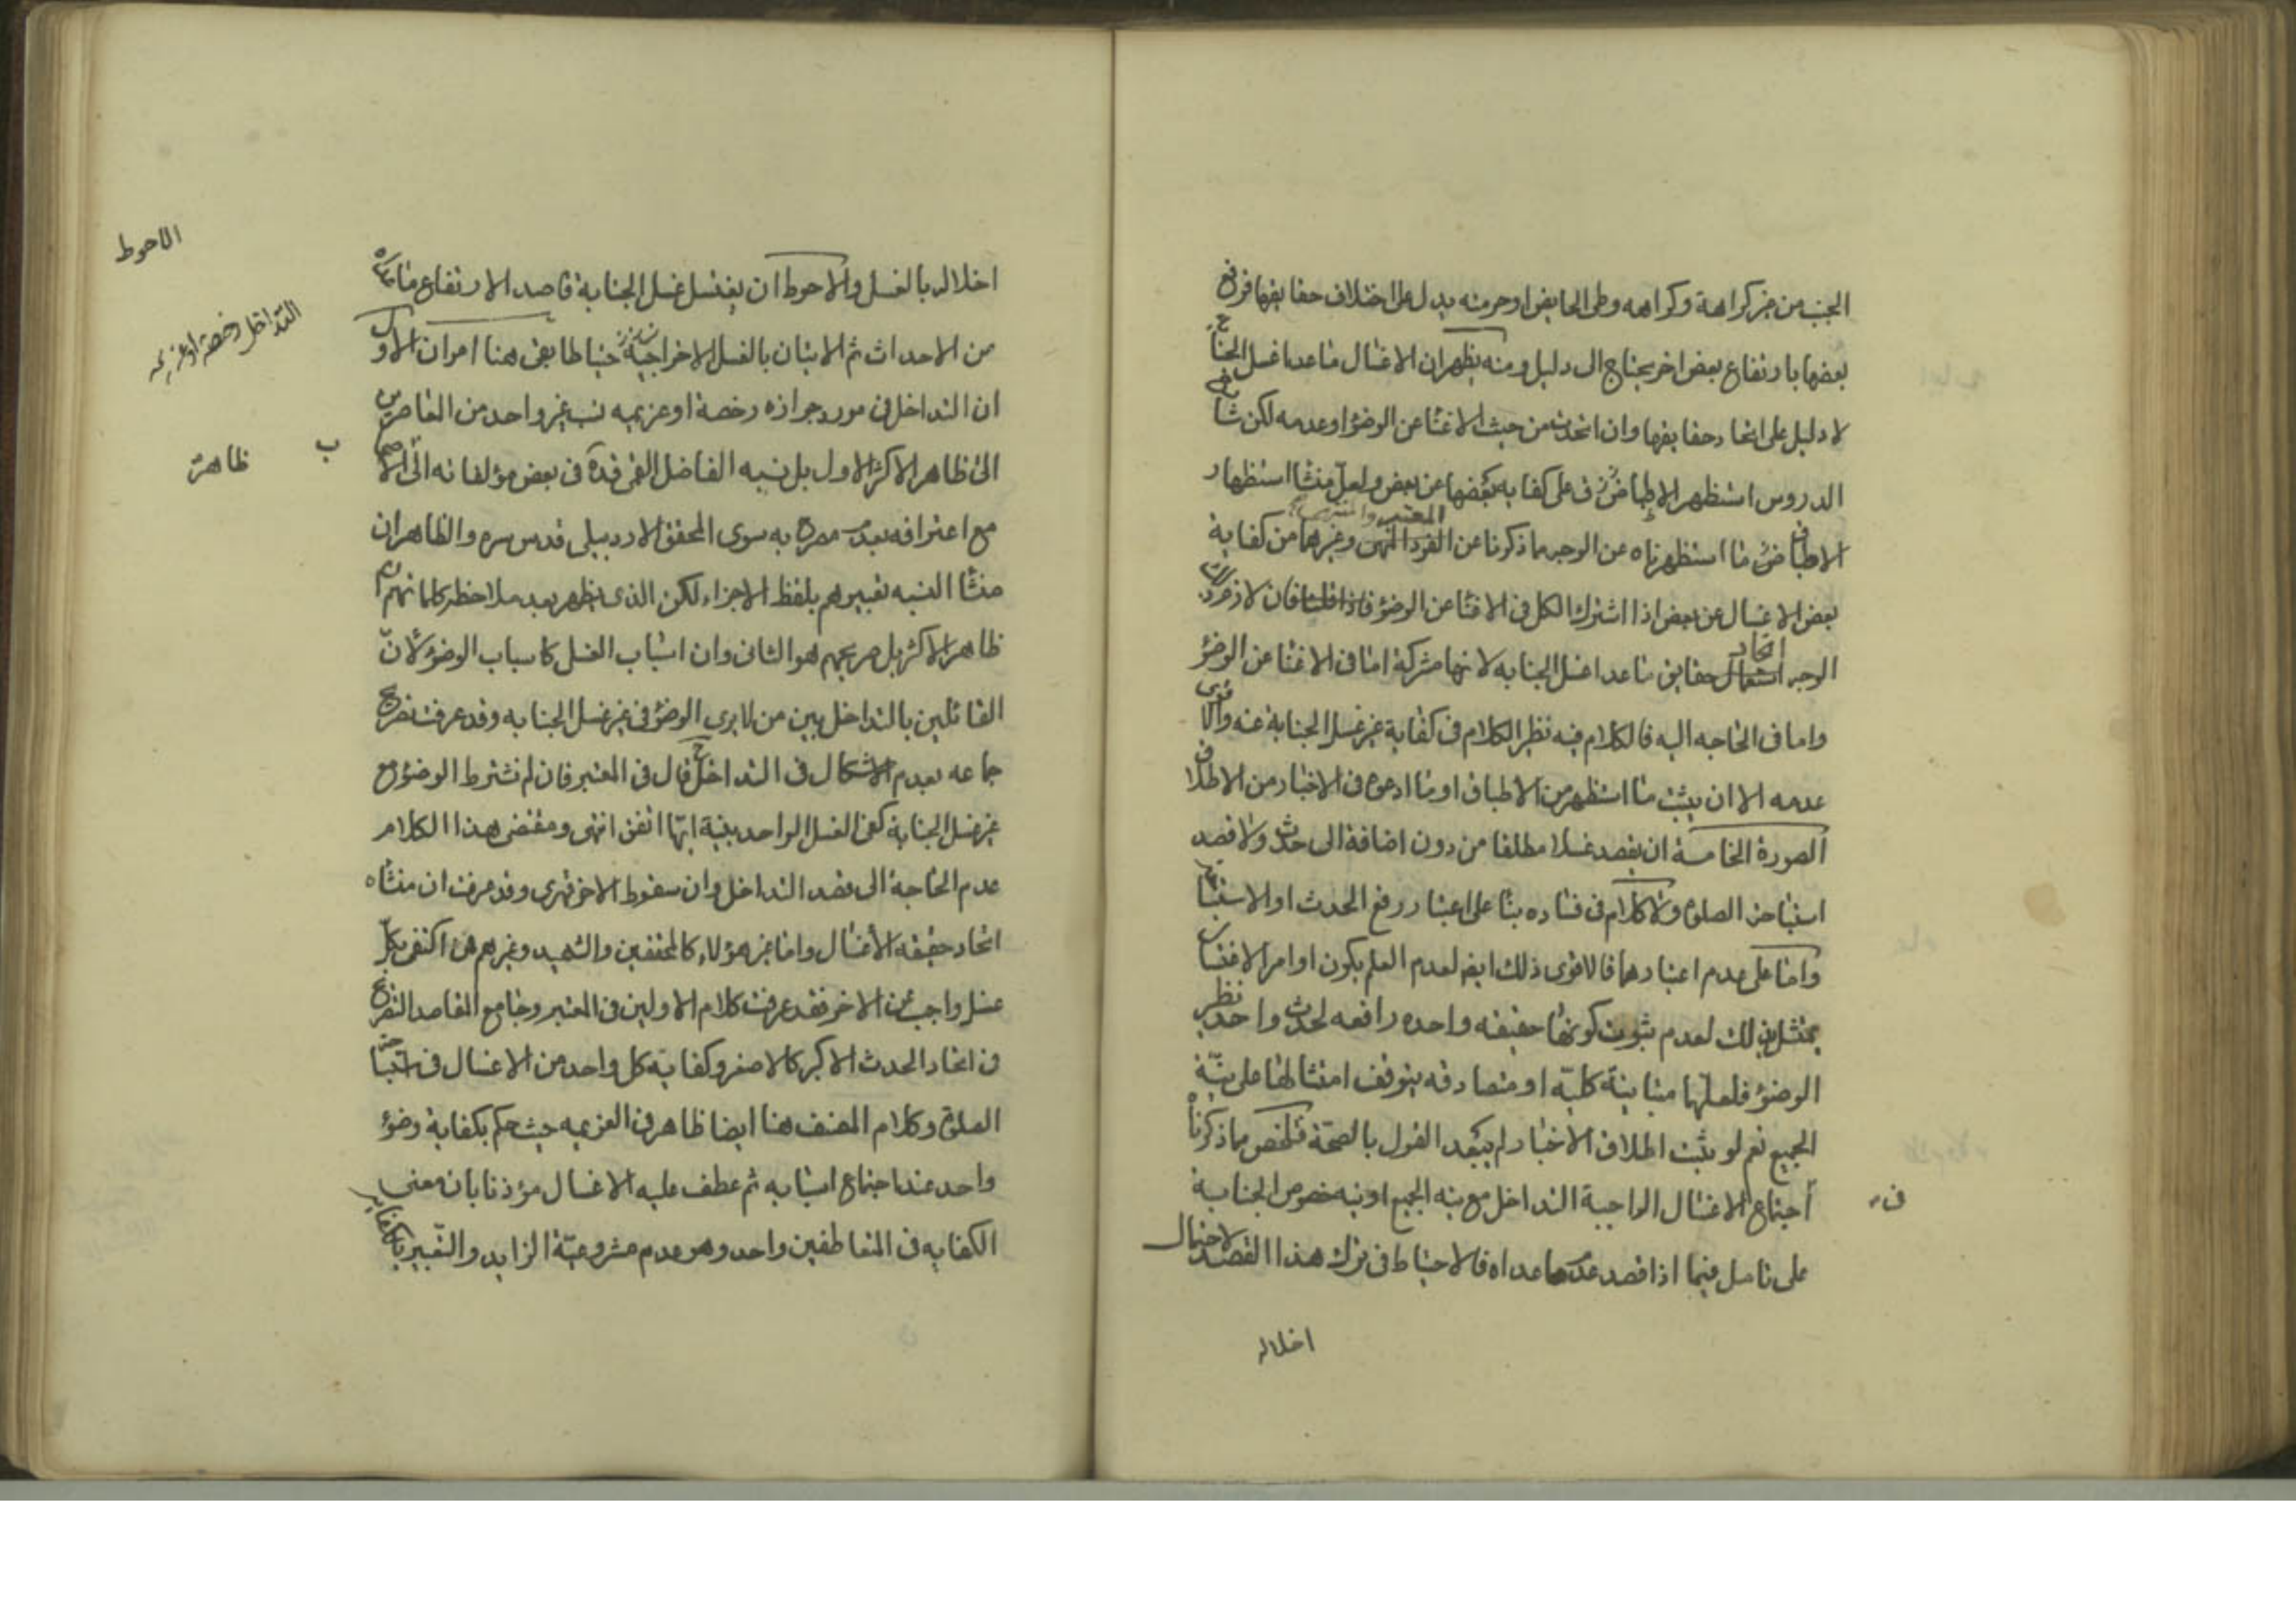 الجنب من غير كراهة وكراهه وطى الحايض او حرمته يدل على اختلاف حقايقها فرفع
بعضها بارتفاع بعض اخر يحتاج الى دليل ومنه يظهر ان الاغسال ماعدا غسل الجنابة
لا دليل على اتحاد حقايقها وان اتحدت من حيث الاغنا عن الوضوء او عدمه لكن شارح
الدروس استظهر الاطباق على كفاية بعضها عن بعض ولعل منشأ استظهار
الاطباق ما استظهرناه عن الوجه ما ذكرنا عن المعتبر وغيرها من كفاية
بعض الاغسال عن بعض اذا اشترك الكل فى الاغنا عن الوضوء فان لازم ذلك
الوجه اتحاد حقايق ماعدا غسل الجنابه لانها مشتركة اما فى الاغنا عن الوضوء
واما فى الحاجه اليه فالكلام فيه نظير الكلام فى كفاية غير غسل الجنابة عنه والاقوى
عدمه الا ان يثبت ما استظهر من الاطباق او ما ادعوه فى الاخبار من الاطلاق
الصورة الخامسة ان يقصد غسلا مطلقا من دون اضافة الى حدث ولا قصد
استباحة الصلوة ولا كلام فى فساده بناء على اعتبار رفع الحدث او الاستباحة
واما على عدم اعتبارهما فالاقوى ذلك ايضا لعدم العلم بكون اوامر الاغتسال
يمتثل بذلك لعدم ثبوت كونها حقيقه واحده رافعه لحدث واحد نظير
الوضوء فلعلها متباينة كلية او متصادقه يتوقف امتثالها على نية
الجميع نعم لو ثبت اطلاق الاخبار لم يبعد القول بالصحة فتلخص مما ذكرنا
اجتماع الاغسال الواجبة التداخل مع نيه الجميع او نيه خصوص الجنابة
على تامل فيما اذا قصد عدم ماعداه فالاحتياط فى ترك هذا القصد لاحتمال
اخلاله
اخلاله بالغسل والاحوط ان يغتسل غسل الجنابة قاصد الارتفاع ماعداه
من الاحداث ثم الاتيان بالغسل الاخر احتياطا بقى هنا امران الاول
ان التداخل فى مورد جوازه رخصة او عزيمه نسب غير واحد من المعاصرين
الى ظاهر الاكثر الاول بل نسبه الفاضل القمى قده فى بعض مؤلفاته الى الاصحاب
مع اعترافه بعدم مصرح به سوى المحقق الاردبيلى قدس سره والظاهر ان
منشأ النسبه تعبيرهم بلفظ الاجزاء لكن الذى يظهر بعد ملاحظة كلماتهم ان
ظاهر الاكثر بل صريحهم هو الثانى وان اسباب الغسل كاسباب الوضوء لان
القائلين بالتداخل بين من لا يرى الوضوء فى غير غسل الجنابه وقد عرفت تصريح
جماعه بعدم الاشكال فى التداخل قال فى المعتبر فان لم نشترط الوضوء مع
غير غسل الجنابة كفى الغسل الواحد بنية ايها اتفق انتهى ومقتضى هذا الكلام
عدم الحاجة الى قصد التداخل وان سقوط الاخر قهرى وقد عرفت ان منشأه
اتحاد حقيقه الأغسال واما غير هؤلاء كالمحققين والشهيد وغيرهم ممن اكتفى بكل
غسل واجب عن الاخر فقد عرفت كلام الاولين فى المعتبر وجامع المقاصد التصريح
فى اتحاد الحدث الاكبر كالاصغر وكفاية كل واحد من الاغسال فى استباحة
الصلوة وكلام المصنف هنا ايضا ظاهر فى العزيمه حيث حكم بكفاية وضوء
واحد عند اجتماع اسبابه ثم عطف عليه الاغسال مؤذنا بان معنى
الكفايه فى المتعاطفين واحد وهو عدم مشروعية الزايد والتعبير بالكفايه
الاحوط
التداخل رخصة او عزيمه
ب
ظاهرة